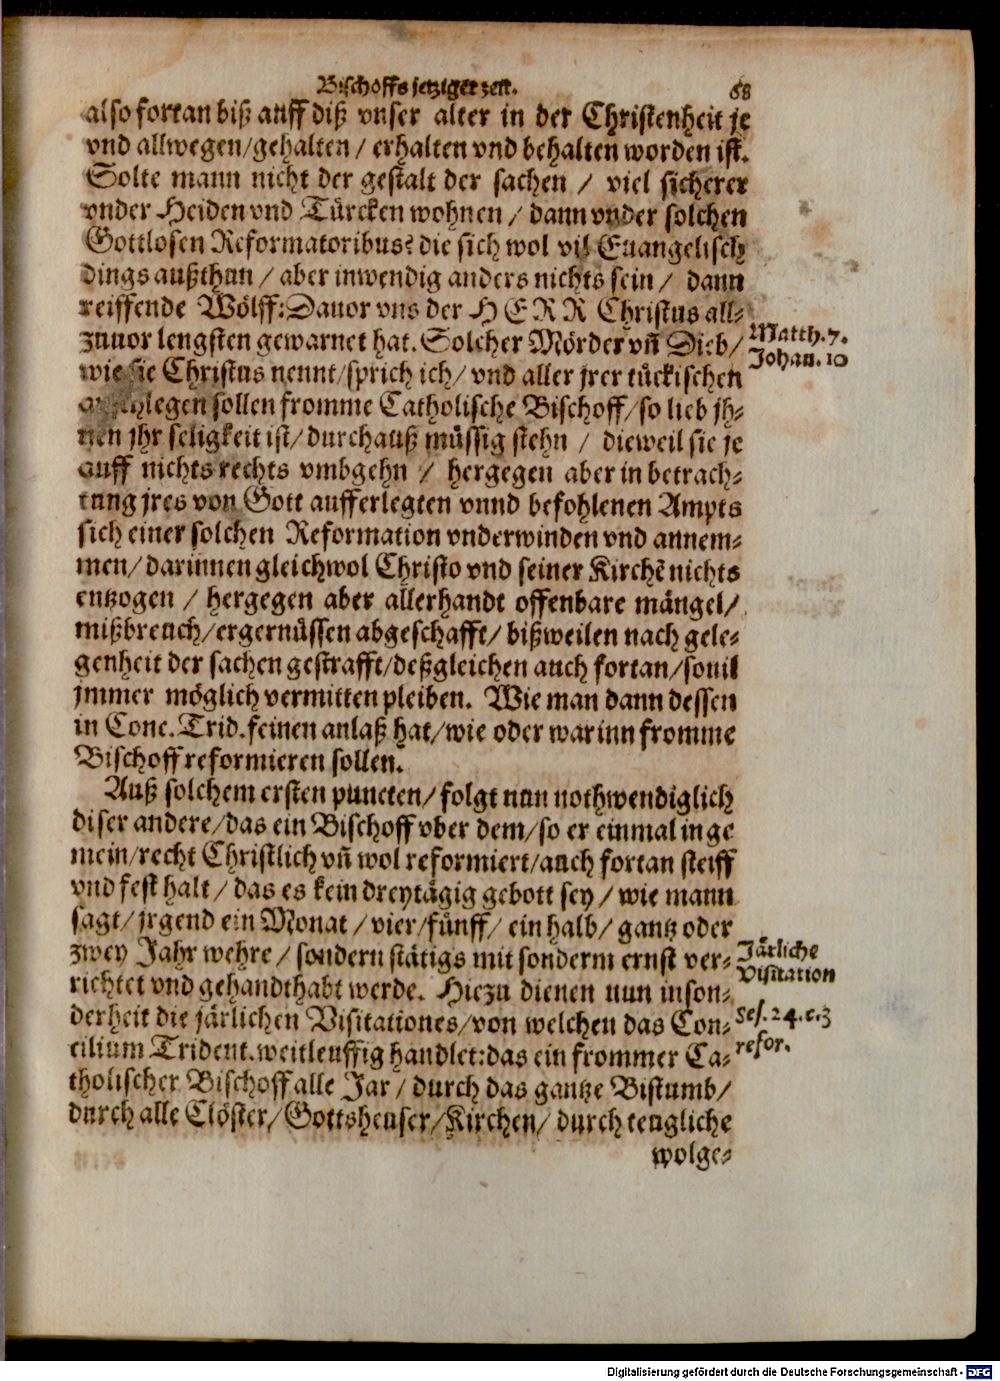 Bischoffs jetziger zeit. 68
also fortan biß auff diß vnser alter in der Christenheit je
vnd allwegen/gehalten / erhalten vnd behalten worden ist.
Solte mann nicht der gestalt der sachen / viel sicherer
vnder Heiden vnd Türcken wohnen / dann vnder solchen
Gottlosen Reformatoribus? die sich wol vil Euangelisch
dings außthun / aber inwendig anders nichts sein / dann
reiffende Wölff: Dauor vns der HERR Christus all-
zuuor lengsten gewarnet hat. Solcher Mörder vñ Dieb/
Matth. 7.
Johan. 10
wie sie Christus nennt/sprich ich/ vnd aller jrer tückischen
anschlegen sollen fromme Catholische Bischoff/so lieb jh-
nen jhr seligkeit ist/ durchauß müssig stehn / dieweil sie je
auff nichts rechts vmbgehn / hergegen aber in betrach-
tung jres von Gott aufferlegten vnnd befohlenen Ampts
sich einer solchen Reformation vnderwinden vnd annem-
men/ darinnen gleichwol Christo vnd seiner Kirchẽ nichts
entzogen / hergegen aber allerhandt offenbare mängel/
mißbreuch/ergernüssen abgeschafft/ bißweilen nach gele-
genheit der sachen gestrafft/deßgleichen auch fortan/souil
jmmer möglich vermitten pleiben. Wie man dann dessen
in Conc. Trid. feinen anlaß hat/wie oder warinn fromme
Bischoff reformieren sollen.
Auß solchem ersten puncten/ folgt nun nothwendiglich
diser andere/das ein Bischoff vber dem/so er einmal in ge
mein/recht Christlich vñ wol reformiert/auch fortan steiff
vnd fest halt / das es kein dreytägig gebott sey / wie mann
sagt/ jrgend ein Monat / vier/fünff/ ein halb/ gantz oder
zwey Jahr wehre / sondern stätigs mit sonderm ernst ver-
Järliche
Visitation
richtet vnd gehandthabt werde. Hiezu dienen nun inson-
derheit die järlichen Visitationes/von welchen das Con-
Ses. 24. c. 3
refor.
cilium Trident. weitleuffig handlet: das ein frommer Ca-
tholischer Bischoff alle Jar / durch das gantze Bistumb/
durch alle Clöster/ Gottsheuser/Kirchen/ durch teugliche
wolge-
Digitalisierung gefördert durch die Deutsche Forschungsgemeinschaft - DFG